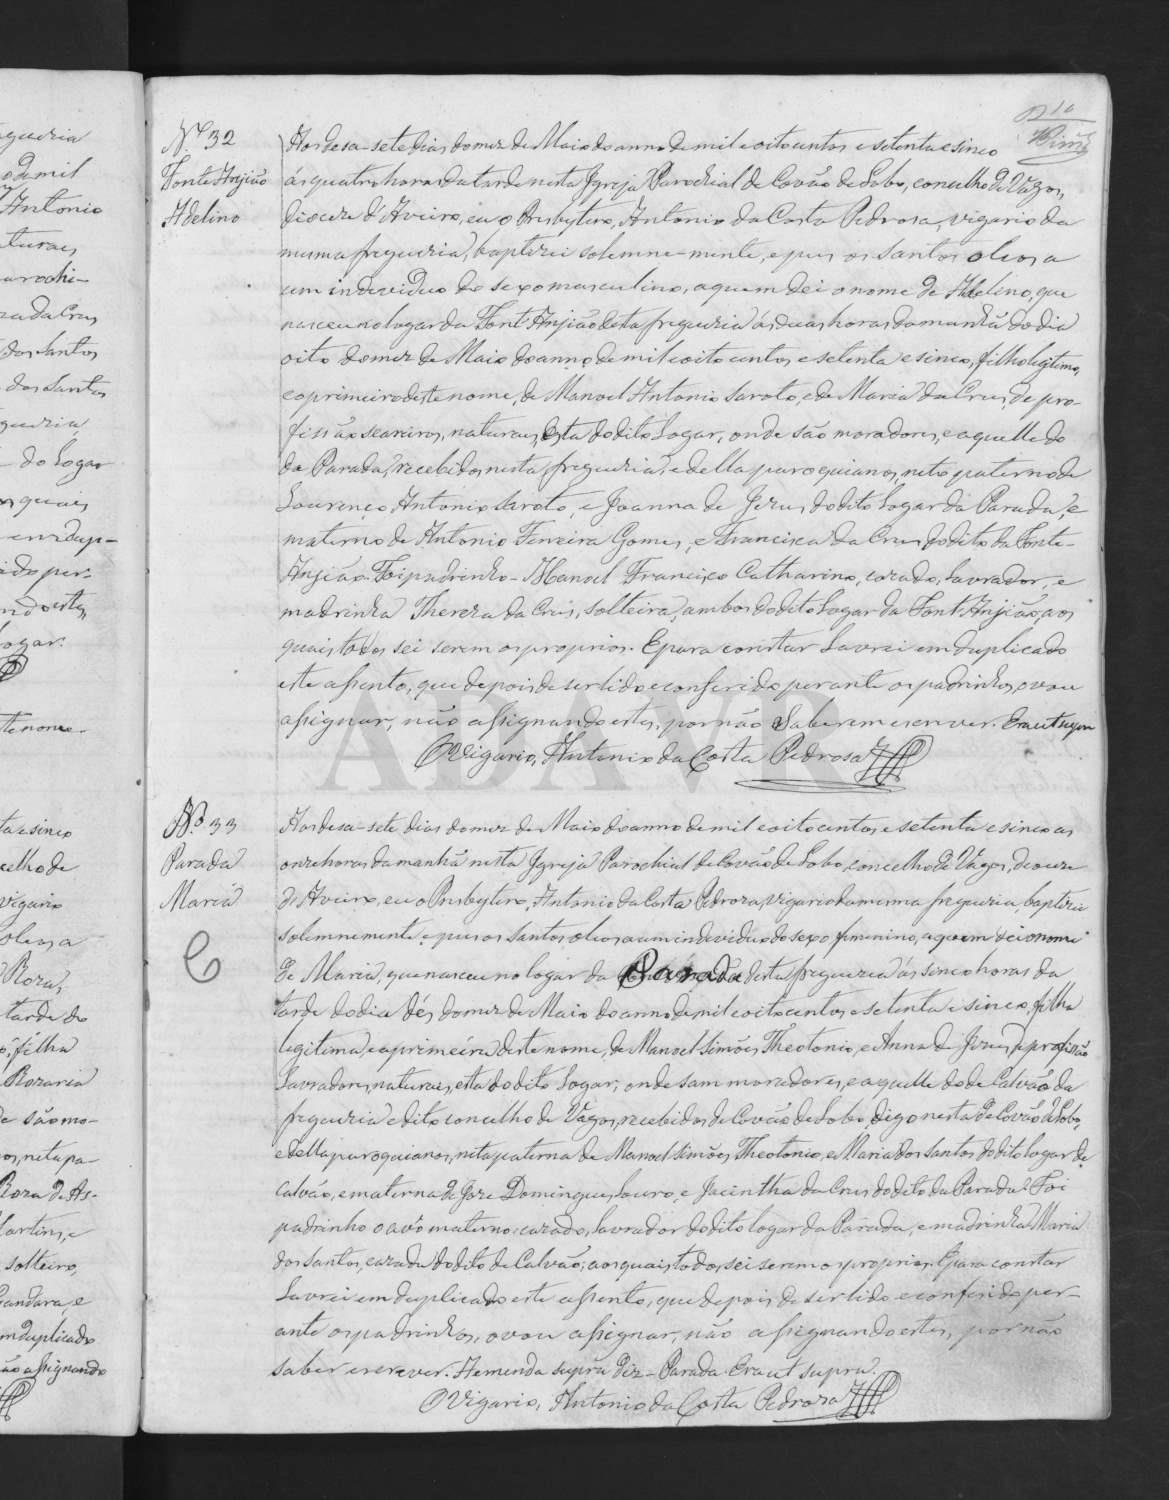 10
Nº 32
Fonte Anjião
Adelino
Aos desa-sete dias do mez de Maio do anno de mil e oitocentos e setenta e sinco
ás quatro horas da tarde nesta Igreja Parochial de Covão de Lobo, concelho de Vagos,
Diocese d'Aveiro, eu o Presbytero, Antonio da Costa Pedrosa, vigario da
mesma freguezia, baptizei solemne-mente, e pus os santos oleos a
um individuo do sexo masculino, a quem dei o nome de Adelino, que
nasceu no logar da Font'Anjião desta freguezia ás duas horas da manhã do dia
oito do mez de Maio do anno de mil e oito centos e setenta e sinco, filho legitimo,
e o primeiro deste nome, de Manoel Antonio Saroto, e de Maria da Crus, de pro-
fissão seareiros, naturaes, esta do dito Logar, onde são moradores, e aquelle do
da Parada, recebidos nesta freguezia, e della paroquianos, neto paterno de
Lourenço Antonio Saroto, e Joanna de Jezus, do dito Logar da Parada, e
materno de Antonio Ferreira Gomes, e Francisca da Crus do dito da Fonte-
Anjião. Foi padrinho - Manoel Francisco Catharino, cazado, lavrador, e
madrinha Thereza da Crus, solteira, ambos do dito Logar da Font'Anjião, aos
quais todos sei serem os proprios. E para constar lavrei em duplicado
este assento, que depois de ser lido e conferido perante os padrinhos, o vou
assignar, não assignando estes, por não saberem escrever. Era ut supra
O Vigario, Antonio da Costa Pedrosa
Nº 33
Parada
Maria
Aos desa-sete dias do mez de Maio do anno de mil e oitocentos e setenta e sinco as
onze horas da manhã nesta Igreja Parochial de Covão de Lobo, concelho de Vagos, deoceze
d'Aveiro, eu o Presbytero, Antonio da Costa Pedroza, vigario da mesma freguezia, baptizei
solemnemente e pus os santos oleos a um individuo do sexo femenino, a quem dei o nome
de Maria, que nasceu no logar da Parada desta freguezia ás sinco horas da
tarde do dia dés do mez de Maio do anno de mil e oitocentos e setenta e sinco, filha
legitima, e a primeira deste nome, de Manoel Simões Theotonio, e Anna de Jezus, de profissão
Lavradores, naturaes, esta do dito Logar, onde sam moradores, e aquelle do de Calvão da
freguezia e dito concelho de Vagos, recebidos de Covão de Lobo, digo nesta de Covão de Lobo,
e della paroquianos, neta paterna de Manoel Simões Theotonio, e Maria dos Santos do dito logar de
Calvão, e materna de Joze Domingues Louro, e Jacintha da Crus do dito da Parada. Foi
padrinho o avô materno, cazado, lavrador do dito logar da Parada, e madrinha Maria
dos Santos, cazada do dito de Calvão; aos quais todos sei serem os proprios. E para constar
Lavrei em duplicado este assento, que depois de ser lido e conferido per-
ante os padrinhos, o vou assignar, não assignando estes, por não
saber escrever. A emenda supra diz - Parada. Era ut supra.
O Vigario, Antonio da Costa Pedroza
ADAVR